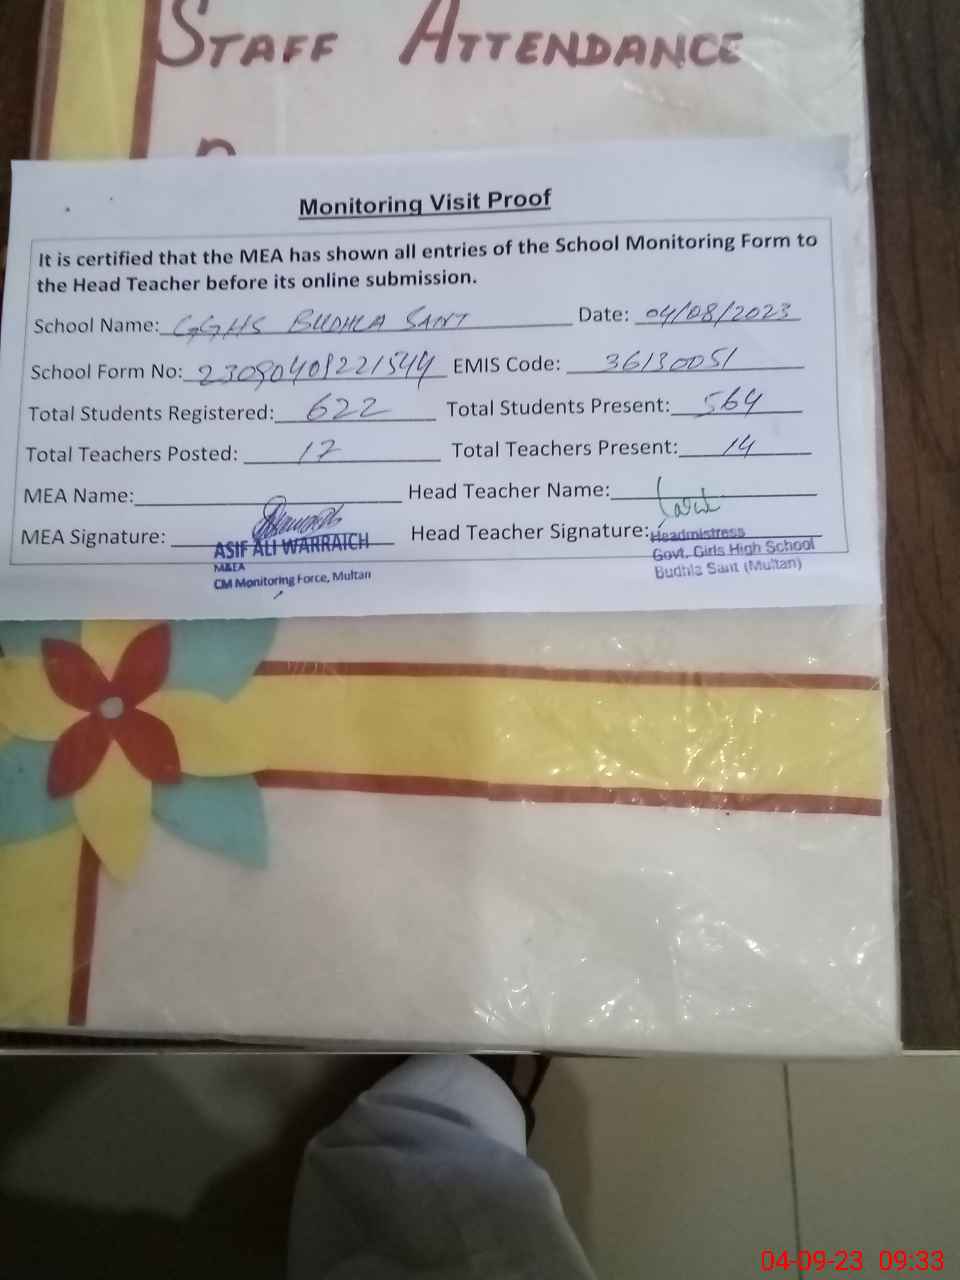 STAFF ATTENDANCE
Monitoring Visit Proof
It is certified that the MEA has shown all entries of the School Monitoring Form to
the Head Teacher before its online submission.
School Name: GGHS BUDHLA SANT Date: 04/08/2023
School Form No: 23090409221544 EMIS Code: 36130051
Total Students Registered: 622 Total Students Present: 564
Total Teachers Posted: 17 Total Teachers Present: 14
MEA Name: Head Teacher Name:
MEA Signature: Head Teacher Signature:
ASIF ALI WARRAICH
M&EA
CM Monitoring Force, Multan
Headmistress
Govt. Girls High School
Budhla Sant (Multan)
04-09-23 09:33